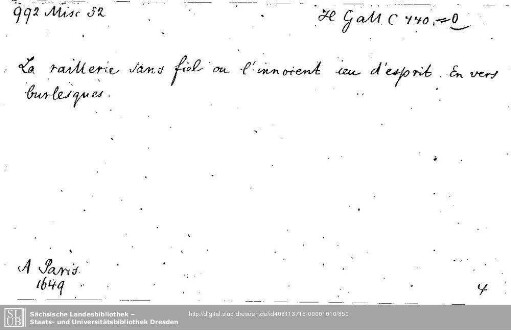 992 Misc 52
H Gall C 770
La raillerie sans fiel ou l'innocent ieu d'esprit. En vers
burlesques.
A Paris.
1649
4
Sächsische Landesbibliothek –
Staats- und Universitätsbibliothek Dresden